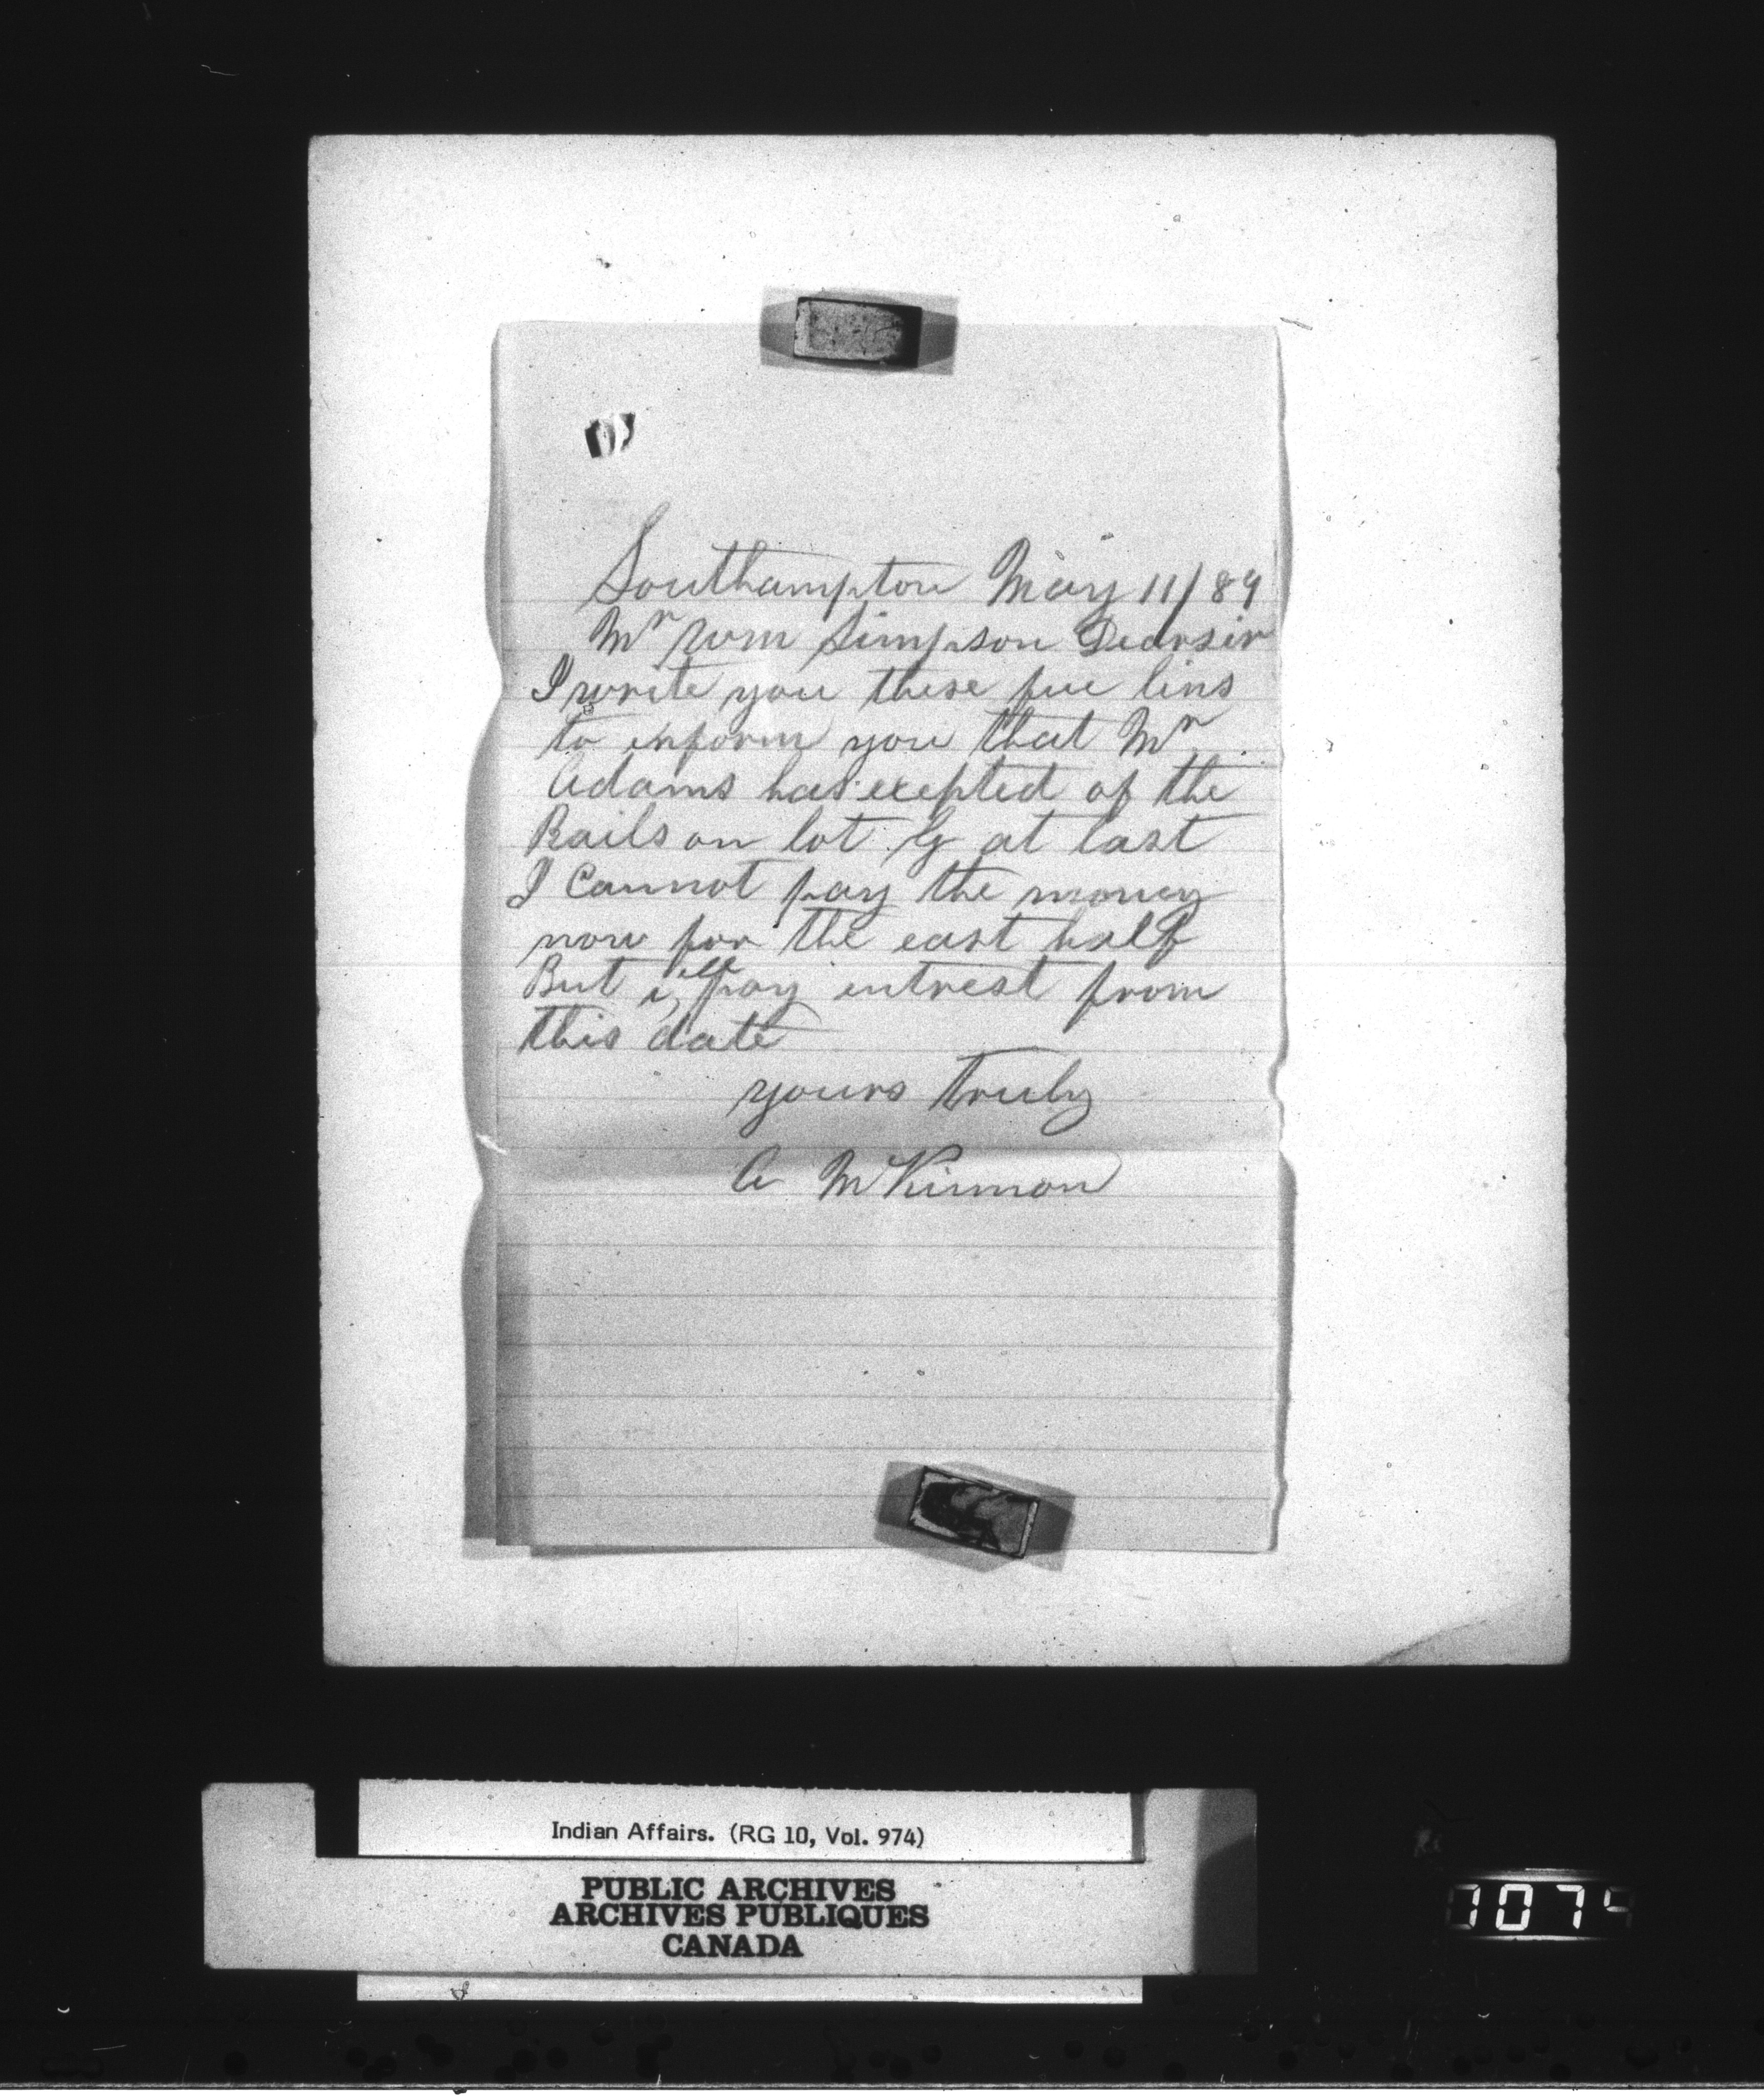 Southampton May 11/89
Mr Wm Simpson Dearsir
I write you these fue lins
to inform you that Mr
Adams has exepted of the
Rails on lot G at last
I Cannot pay the money
now for the east half
But i ill pay intrest from
this date
yours truly
A McKinnon
Indian Affairs. (RG 10, Vol. 974)
PUBLIC ARCHIVES
ARCHIVES PUBLIQUES
CANADA